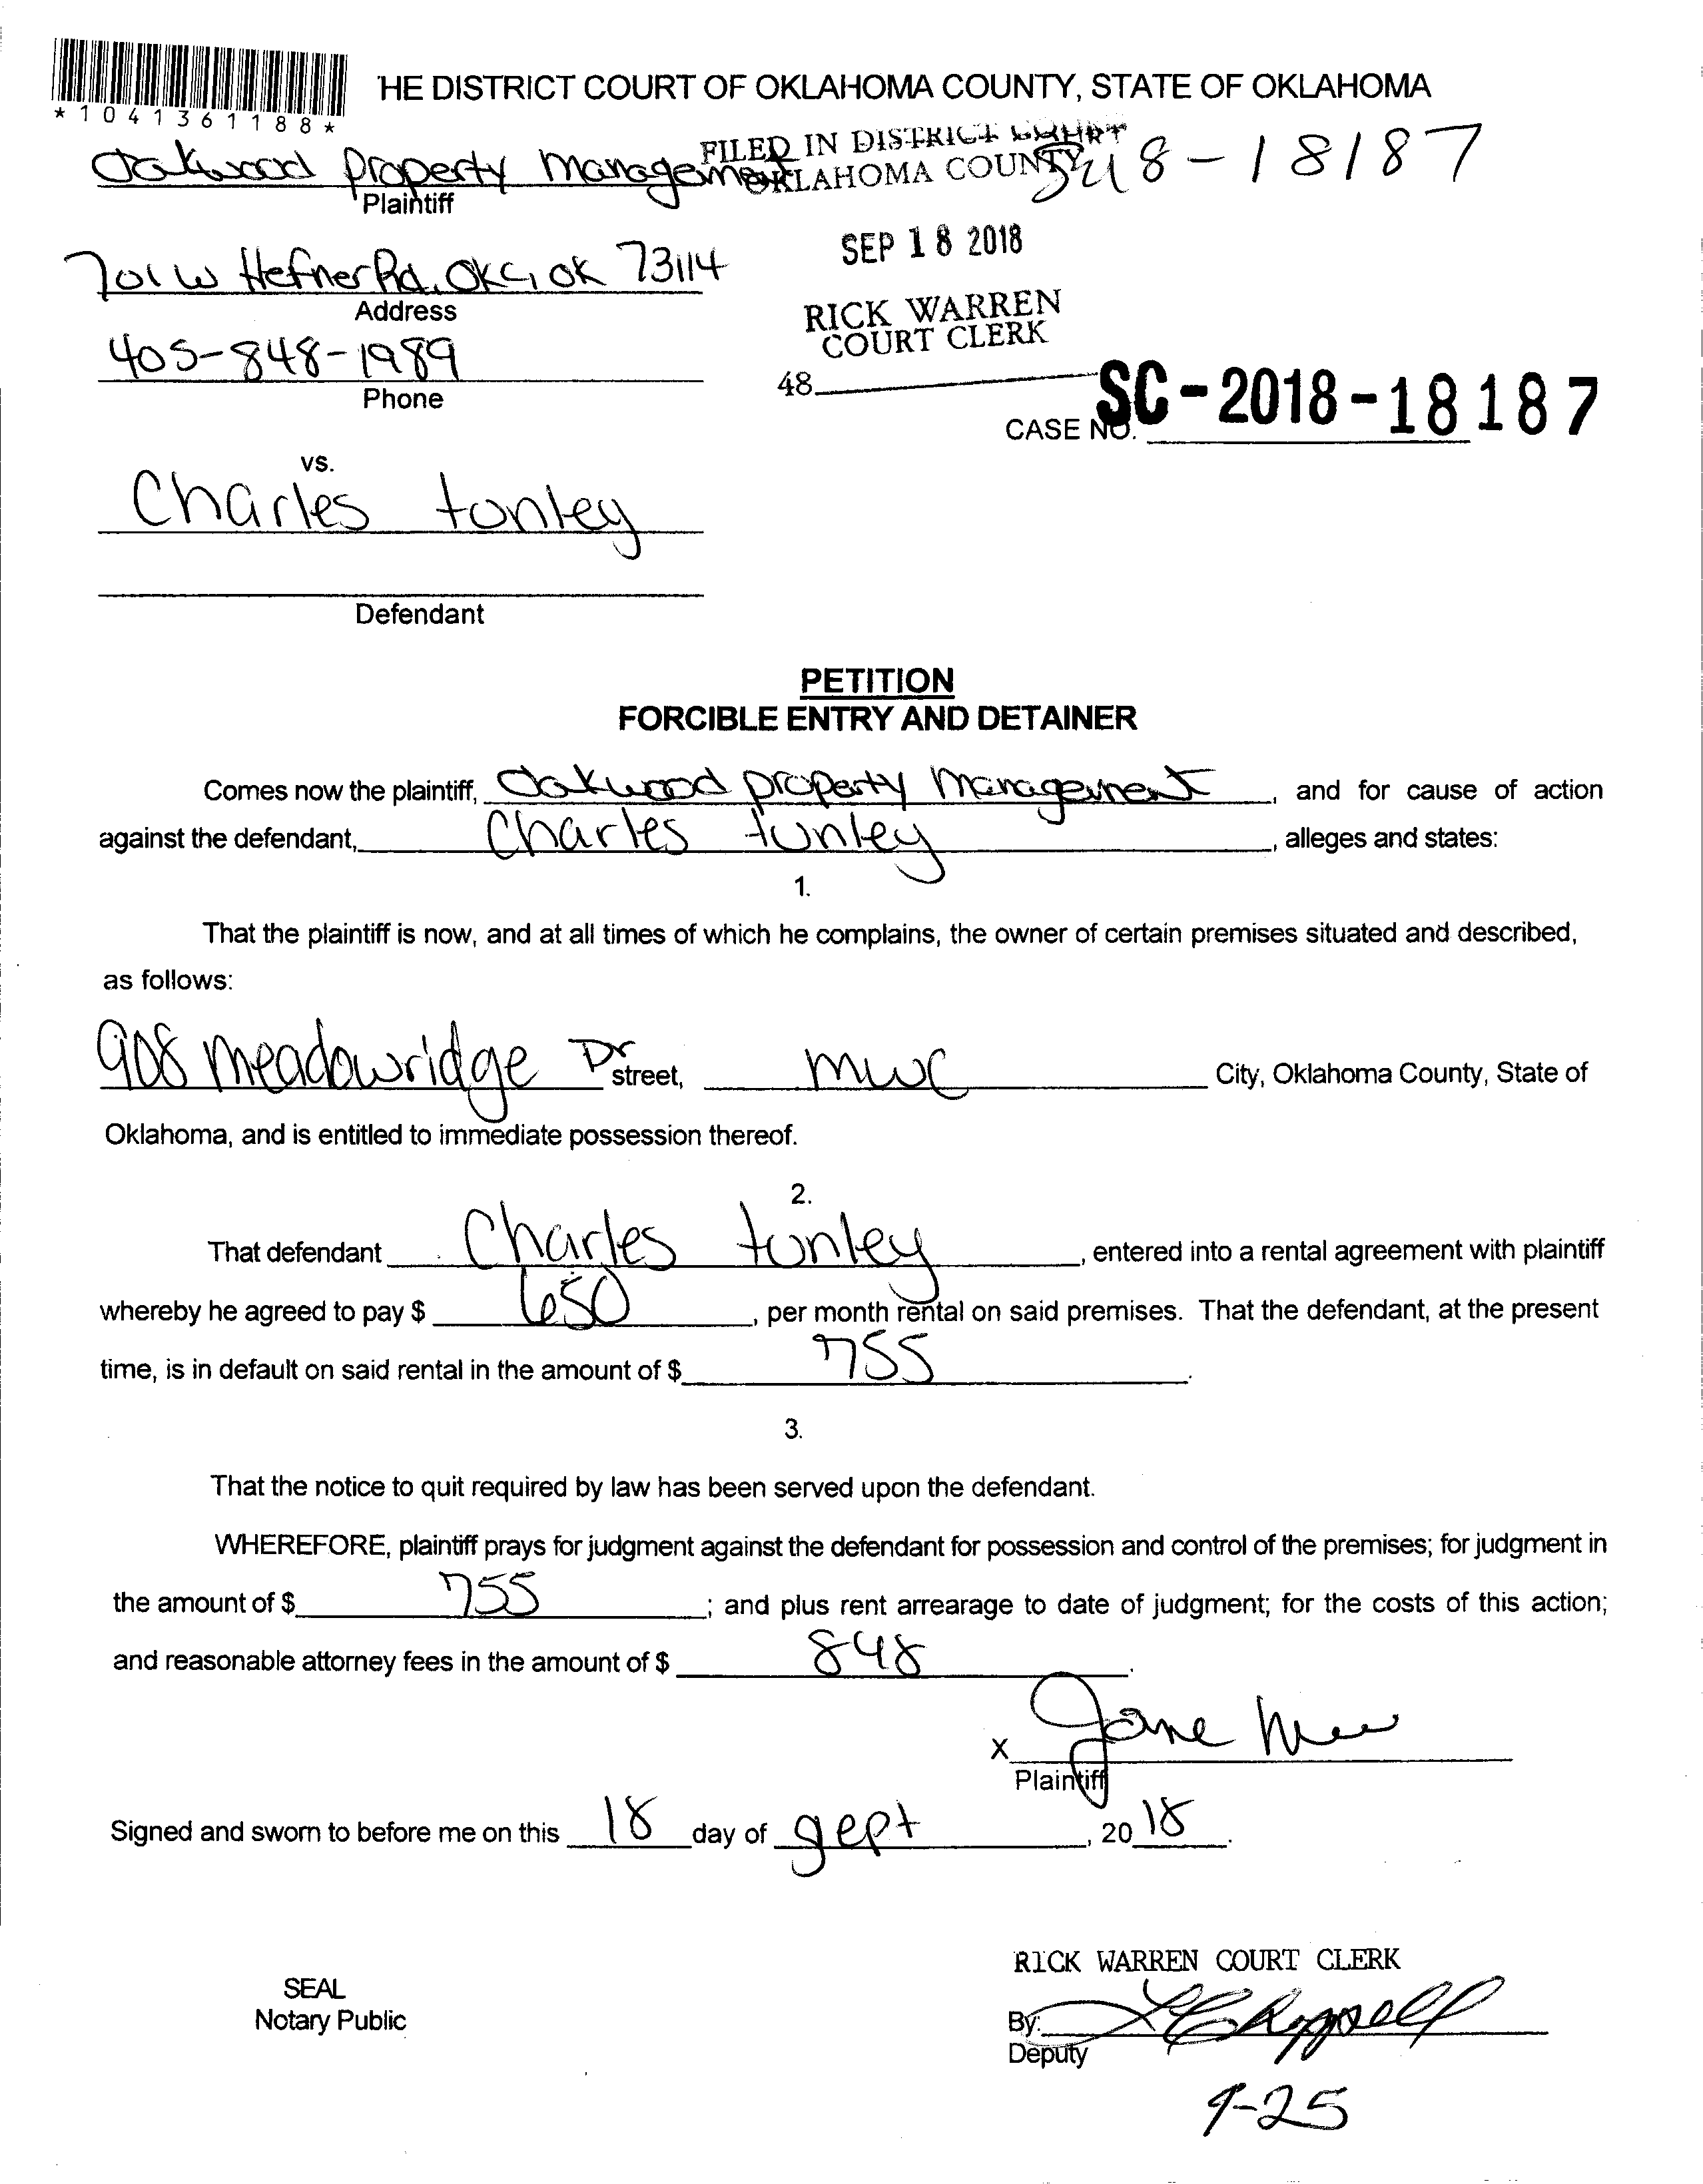 *1041361188*
HE DISTRICT COURT OF OKLAHOMA COUNTY, STATE OF OKLAHOMA
FILED IN DISTRICT COURT
OKLAHOMA COUNTY
18-18187
Oakwood Property Management
Plaintiff
SEP 18 2018
701 W Hefner Rd. OKC, OK 73114
Address
RICK WARREN
COURT CLERK
405-848-1989
Phone
48
CASE NO. SC-2018-18187
vs.
Charles tunley
Defendant
PETITION
FORCIBLE ENTRY AND DETAINER
Comes now the plaintiff, Oakwood property Management, and for cause of action
against the defendant, Charles tunley, alleges and states:
1.
That the plaintiff is now, and at all times of which he complains, the owner of certain premises situated and described,
as follows:
908 Meadowridge Dr street, mwc City, Oklahoma County, State of
Oklahoma, and is entitled to immediate possession thereof.
2.
That defendant Charles tunley, entered into a rental agreement with plaintiff
whereby he agreed to pay $ 650, per month rental on said premises. That the defendant, at the present
time, is in default on said rental in the amount of $ 755.
3.
That the notice to quit required by law has been served upon the defendant.
WHEREFORE, plaintiff prays for judgment against the defendant for possession and control of the premises; for judgment in
the amount of $ 755; and plus rent arrearage to date of judgment; for the costs of this action;
and reasonable attorney fees in the amount of $ 848.
X Jane
Plaintiff
Signed and sworn to before me on this 18 day of sept, 20 18.
RICK WARREN COURT CLERK
SEAL
Notary Public
By:
Deputy
9-25